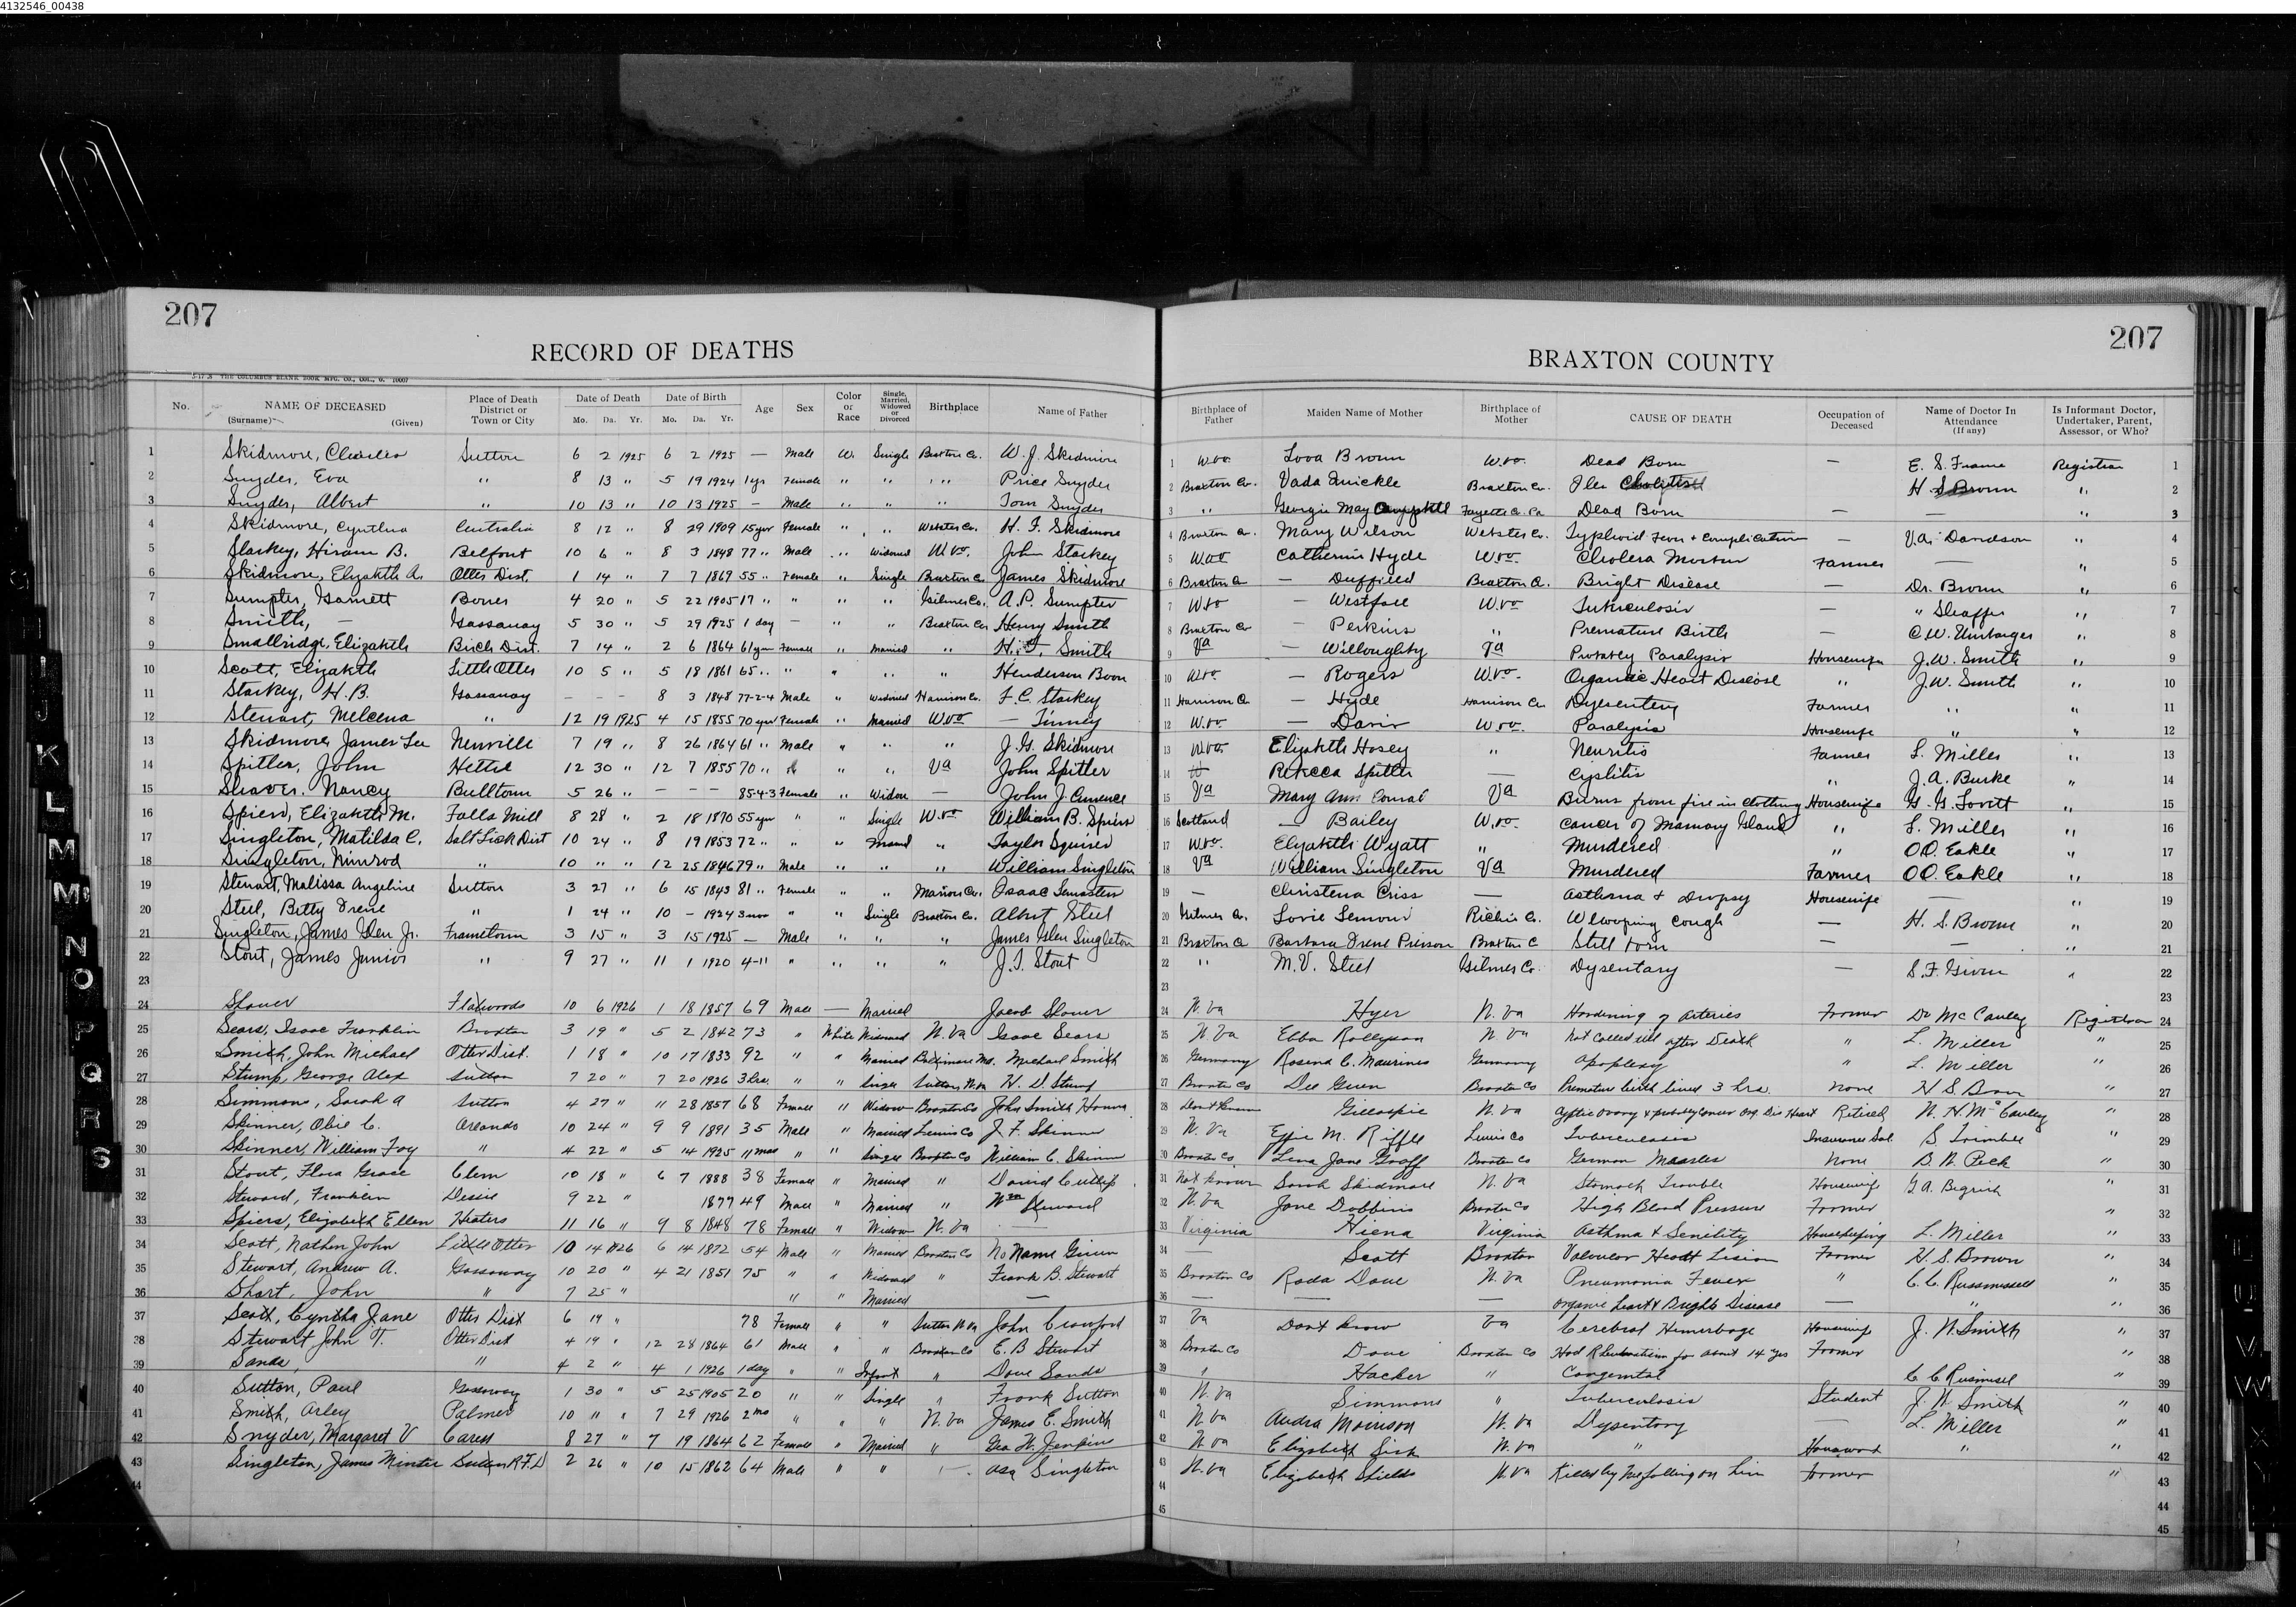 4132546_00438
207
RECORD OF DEATHS
THE COLUMBUS BLANK BOOK MFG. CO., COL., O. 10007
No. NAME OF DECEASED (Surname) (Given) Place of Death District or Town or City Date of Death Mo. Da. Yr. Date of Birth Mo. Da. Yr. Age Sex Color or Race Single, Married, Widowed or Divorced Birthplace Name of Father
1 Skidmore, Charles Sutton 6 2 1925 6 2 1925 — Male W. Single Braxton Co. W. J. Skidmore
2 Snyder, Eva " 8 13 " 5 19 1924 1 yr Female " " " Price Snyder
3 Snyder, Albert " 10 13 " 10 13 1925 - Male " " " Tom Snyder
4 Skidmore, Cynthia Centralia 8 12 " 8 29 1909 15 yrs Female " " Webster Co. H. F. Skidmore
5 Starkey, Hiram B. Belfont 10 6 " 8 3 1848 77 " Male " Widowed W.Va. John Starkey
6 Skidmore, Elizabeth A. Otter Dist. 1 14 " 7 7 1869 55 " Female " Single Braxton Co James Skidmore
7 Sumpter, Garnett Bower 4 20 " 5 22 1905 17 " " " " Gilmer Co. A. P. Sumpter
8 Smith, — Gassaway 5 30 " 5 29 1925 1 day — " " Braxton Co Henry Smith
9 Smallridge, Elizabeth Birch Dist. 7 14 " 2 6 1864 61 yrs Female " Married " H. T. Smith
10 Scott, Elizabeth Little Otter 10 5 " 5 18 1861 65 " " " " " Henderson Boon
11 Starkey, H. B. Gassaway - - - 8 3 1848 77-2-4 Male " Widowed Harrison Co. F. C. Starkey
12 Stewart, Melcena " 12 19 1925 4 15 1855 70 yrs Female " Married W Va — Tinney
13 Skidmore, James Lee Newville 7 19 " 8 26 1864 61 " Male " " " J. G. Skidmore
14 Spitler, John Hettie 12 30 " 12 7 1855 70 " " " Va John Spitler
15 Shaver, Nancy Bulltown 5 26 " - - - 85-4-3 Female " Widow — John J. Currence
16 Spiers, Elizabeth M. Falls Mill 8 28 " 2 18 1870 55 yr " " Single W.Va William B. Spiers
17 Singleton, Matilda C. Salt Lick Dist 10 24 " 8 19 1853 72 " " " Married " Taylor Squires
18 Singleton, Nimrod " 10 " " 12 25 1846 79 " Male " " " William Singleton
19 Stewart, Malissa Angeline Sutton 3 27 " 6 15 1843 81 " Female " " Marion Co. Isaac
20 Steel, Betty Irene " 1 24 " 10 - 1924 3 mo " " Single Braxton Co. Albert Steel
21 Singleton, James Glen Jr. Frametown 3 15 " 3 15 1925 — Male " " " James Glen Singleton
22 Stout, James Junior " 9 27 " 11 1 1920 4-11 " " " " J. T. Stout
23
24 Flatwoods 10 6 1926 1 18 1857 69 Male — Married Jacob
25 Sears, Isaac Franklin Braxton 3 19 " 5 2 1842 73 " White Widowed W. Va Isaac Sears
26 Smith, John Michael Otter Dist. 1 18 " 10 17 1833 92 " " Married Baltimore Md. Michael Smith
27 Stump, George Alex Sutton 7 20 " 7 20 1926 3 hrs. " " Single Sutton W.Va H. D. Stump
28 Simmons, Sarah A Sutton 4 27 " 11 28 1857 68 Female " Widow Braxton Co John Smith
29 Skinner, Obie C. Orlando 10 24 " 9 9 1891 35 Male " Married Lewis Co J. F. Skinner
30 Skinner, William Foy " 4 22 " 5 14 1925 11 mos " " Single Braxton Co William C. Skinner
31 Stout, Flora Grace Clem 10 18 " 6 7 1888 38 Female " Married " David Cutlip
32 Steward, Franklin Desire 9 22 " 1877 49 Male " Married " Wm Steward
33 Spiers, Elizabeth Ellen Heaters 11 16 " 9 8 1848 78 Female " Widow W. Va —
34 Scott, Nathen John Little Otter 10 14 1926 6 14 1872 54 Male " Married Braxton Co No Name Given
35 Stewart, Andrew A. Gassaway 10 20 " 4 21 1851 75 " " Widowed " Frank B. Stewart
36 Short, John " 7 25 " " " Married —
37 Scott, Cyntha Jane Otter Dist 6 19 " 78 Female " " Sutton W Va John Crawford
38 Stewart John T. Otter Dist 4 19 " 12 28 1864 61 Male " " Braxton Co E. B Stewart
39 Sands " 4 2 " 4 1 1926 1 day " " Infant " Dave Sands
40 Sutton, Paul Gassaway 1 30 " 5 25 1905 20 " " Single " Frank Sutton
41 Smith, Arley Palmer 10 11 " 7 29 1926 2 mo " " " W. Va James E. Smith
42 Snyder, Margaret V Caress 8 27 " 7 19 1864 62 Female " Married " Geo W. Jenkins
43 Singleton, James Minter Sutton R.F.D 2 26 " 10 15 1862 64 Male " " " Asa Singleton
44
207
BRAXTON COUNTY
Birthplace of Father Maiden Name of Mother Birthplace of Mother CAUSE OF DEATH Occupation of Deceased Name of Doctor In Attendance (If any) Is Informant Doctor, Undertaker, Parent, Assessor, or Who?
1 W.Va. Lova Brown W.Va. Dead Born — E. S. Frame Registrar 1
2 Braxton Co. Vada Mickle Braxton Co. H. S Brown " 2
3 " Georgie May Campbell Fayette Co. Pa Dead Born — — " 3
4 Braxton Co. Mary Wilson Webster Co. Typhoid Fever + Complication — V. A. Davidson " 4
5 W Va Catherin Hyde W.Va. Cholera Morbus Farmer — " 5
6 Braxton Co — Duffield Braxton Co. Bright Disease — Dr. Brown " 6
7 W Va — Westfall W.Va Tuberculosis — " Shaffer " 7
8 Braxton Co — Perkins " Premature Birth — C. W. Umbarger " 8
9 Va — Willoughby Va Probably Paralysis Housewife J. W. Smith " 9
10 W Va — Rogers W.Va. Organic Heart Disease " J. W. Smith " 10
11 Harrison Co — Hyde Harrison Co. Dysentery Farmer " " 11
12 W.Va. — Davis W Va Paralysis Housewife " " 12
13 W Va. Elizabeth Hosey " Neuritis Farmer L. Miller " 13
14 Rebecca Spitler — Cystitis " J. A. Burke " 14
15 Va Mary Ann Conrad Va Burns from fire in clothing Housewife G. G. Lovitt " 15
16 Scotland — Bailey W.Va. Cancer of Mamary Gland " L. Miller " 16
17 W.Va. Elizabeth Wyatt " Murdered " O.O. Eakle " 17
18 Va William Singleton Va Murdered Farmer O.O. Eakle " 18
19 — Christena Criss — Asthma + Dropsy Housewife — " 19
20 Gilmer Co. Lovie Lemons Richie Co. Whooping Cough — H. S. Brown " 20
21 Braxton Co Barbara Irene Pierson Braxton C Still born — — " 21
22 " M. V. Steel Gilmer Co. Dysentary — S. F. Given " 22
23 23
24 W. Va Hyer W. Va Hardening of Arteries Farmer Dr McCauley Registrar 24
25 W. Va Elba Rollyson W Va Not Called till after Death " L. Miller " 25
26 Germany Rosena C. Maurines Germany Apoplexy " L. Miller " 26
27 Braxton Co Dee Green Braxton Co Premature birth lived 3 hrs. None H S. " 27
28 Dont Know Gillaspie W. Va Cystic Ovary & probably Cancer Org. Dis Heart Retired W. H. McCauley " 28
29 W. Va Effie M. Riffle Lewis Co Tuberculosis Insurance Sol. S. Trimble " 29
30 Braxton Co Lena Jane Goff Braxton Co German Measles None B. W. Peck " 30
31 Not known Sarah Skidmore W. Va Stomach Trouble Housewife " 31
32 W. Va Jane Dobbins Braxton Co High Blood Pressure Farmer " 32
33 Virginia Virginia Asthma & Senility Housekeeping L. Miller " 33
34 — Scott Braxton Valvular Heart Lision Farmer H. S. Brown " 34
35 Braxton Co Rada Dove W. Va Pneumonia Fever " " 35
36 — — — Organic heart & Brights Disease — " " 36
37 Va Dont know Va Cerebral Hemorhage Housewife J. W. Smith " 37
38 Braxton Co Dove Braxton Co Had Rheumatism for about 14 yrs Farmer " 38
39 " Hacker " Congenital " 39
40 W. Va Simmons " Tuberculosis Student J. W. Smith " 40
41 W Va Audra Morrison W. Va Dysentary — L. Miller " 41
42 W Va Elizabeth Sisk W. Va " Housework " " 42
43 W. Va Elizabeth Shields W. Va Killed by tree falling on him Farmer " 43
44 44
45 45
G H I J K L M Mc N O P Q R S
U V W